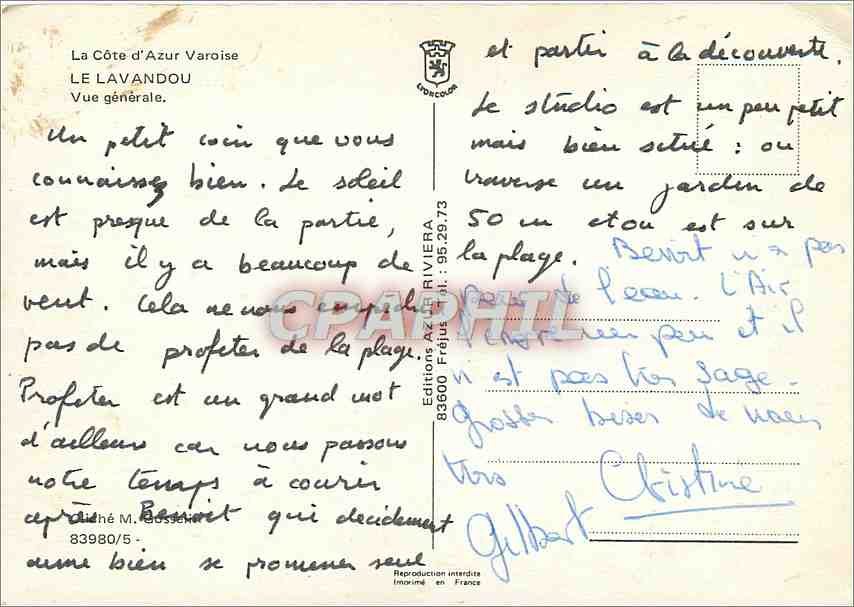 La Côte d'Azur Varoise
LE LAVANDOU
Vue générale.
Un petit coin que vous
connaissez bien. Le soleil
est presque de la partie,
mais il y a beaucoup de
vent. Cela ne nous empêche
pas de profiter de la plage.
Profiter est un grand mot
d'ailleurs car nous passons
notre temps à courir
après Benoit qui decidement
aime bien se promener seul
Cliché M.
83980/5 -
LYONCOLOR
Editions AZUR RIVIERA
83600 Fréjus Tel. : 95.29.73
Reproduction interdite
Imprimé en France
et partir à la découverte.
Le studio est un peu petit
mais bien situé : on
traverse un jardin de
50 m et on est sur
la plage. Benoit n'a pas
peur de l'eau. L'Air
l'énerve un peu et il
n'est pas très sage.
Grosses bises de nous
trois Christine
Gilbert
CPAPHIL